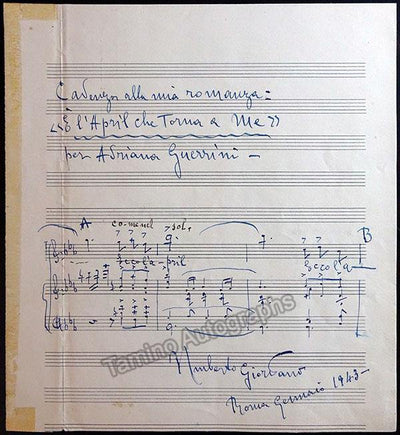 Cadenza alla mia romanza:
«È l'April che Torna a Me»
per Adriana Guerrini –
A
sol.
B
Tamino Autographs
Umberto Giordano
Roma Gennaio 1943 –